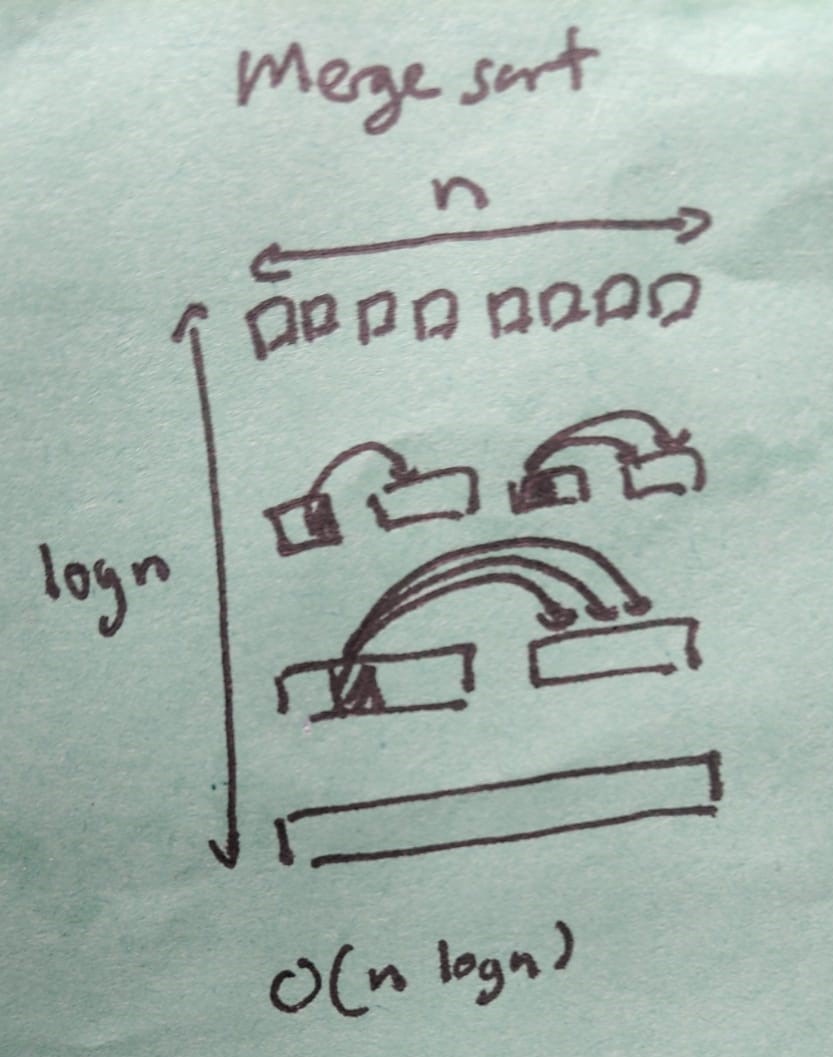 Merge sort
n
log n
O(n log n)